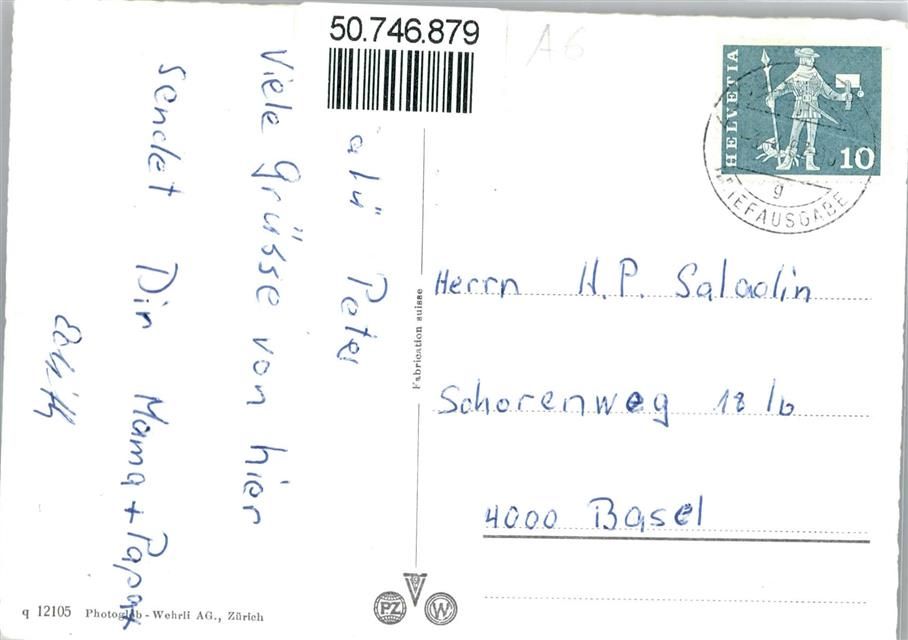 50.746.879
A6
HELVETIA
10
g
BRIEFAUSGABE
alü Peter
Viele Grüsse von hier
sendet Dir Mama + Papa +
Herrn H. P. Saladin
Schorenweg 18/b
4000 Basel
Fabrication suisse
PZ
W
q 12105 Photoglob-Wehrli AG., Zürich